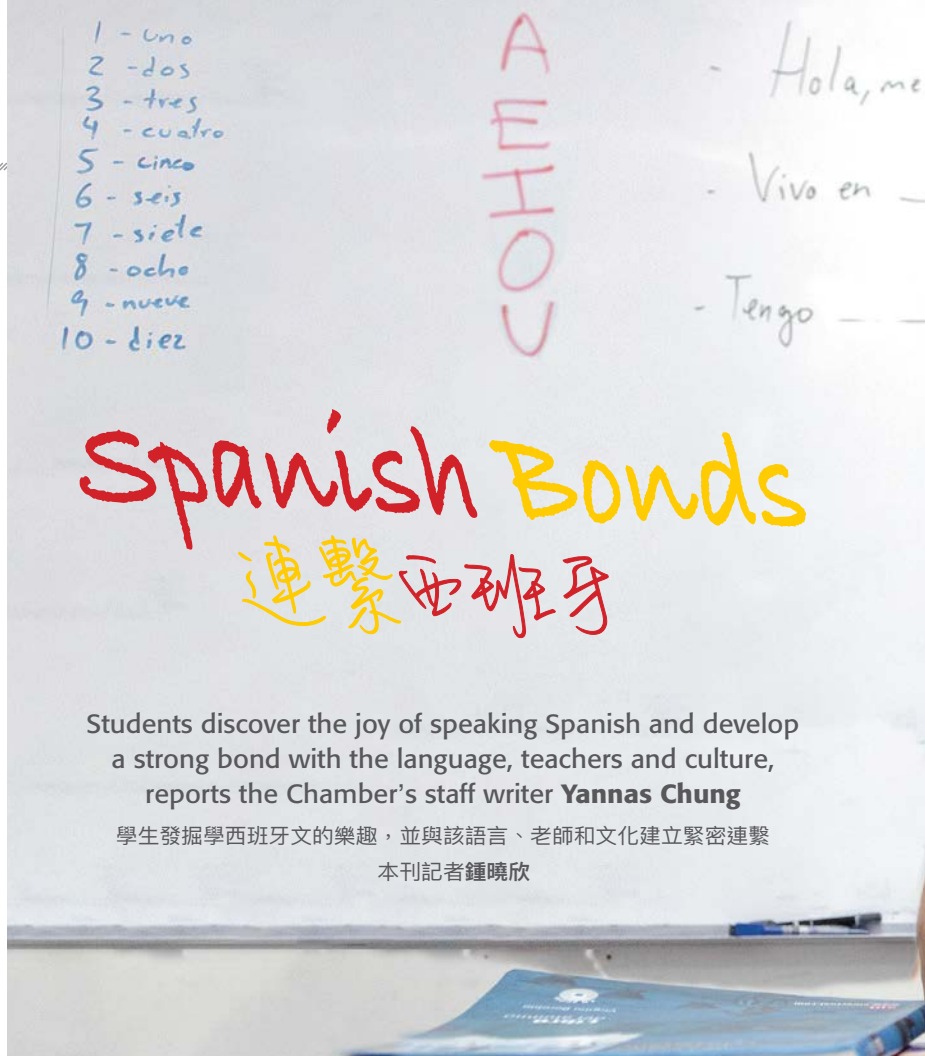 1 - uno
2 - dos
3 - tres
4 - cuatro
5 - cinco
6 - seis
7 - siete
8 - ocho
9 - nueve
10 - diez
A
E
I
O
U
- Hola, me
- Vivo en _
- Tengo _ _
Spanish Bonds
連繫西班牙
Students discover the joy of speaking Spanish and develop
a strong bond with the language, teachers and culture,
reports the Chamber's staff writer Yannas Chung
學生發掘學西班牙文的樂趣，並與該語言、老師和文化建立緊密連繫
本刊記者鍾曉欣